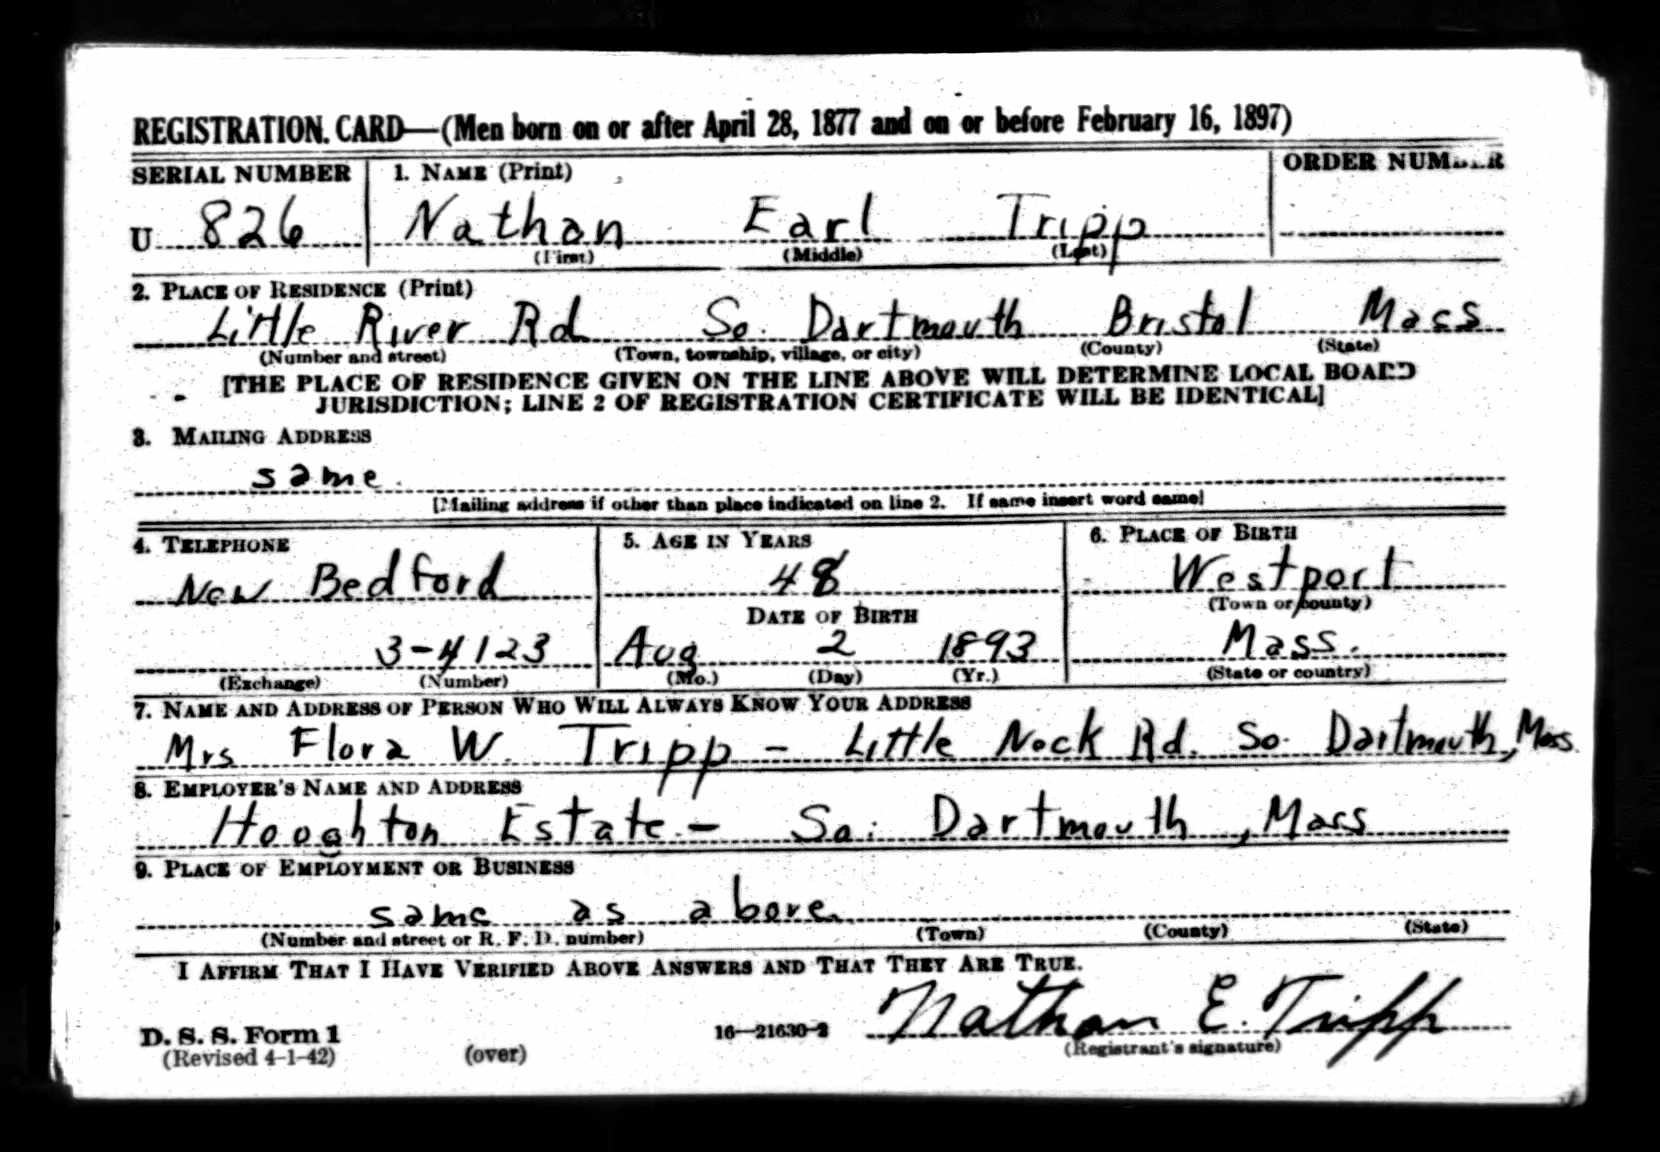 REGISTRATION CARD—(Men born on or after April 28, 1877 and on or before February 16, 1897)
SERIAL NUMBER 1. NAME (Print) ORDER NUMBER
U 826 Nathan Earl Tripp
(First) (Middle) (Last)
2. PLACE OF RESIDENCE (Print)
Little River Rd So. Dartmouth Bristol Mass
(Number and street) (Town, township, village, or city) (County) (State)
[THE PLACE OF RESIDENCE GIVEN ON THE LINE ABOVE WILL DETERMINE LOCAL BOARD
JURISDICTION; LINE 2 OF REGISTRATION CERTIFICATE WILL BE IDENTICAL]
3. MAILING ADDRESS
same.
[Mailing address if other than place indicated on line 2. If same insert word same]
4. TELEPHONE 5. AGE IN YEARS 6. PLACE OF BIRTH
New Bedford 48 Westport
DATE OF BIRTH (Town or county)
3-4123 Aug 2 1893 Mass.
(Exchange) (Number) (Mo.) (Day) (Yr.) (State or country)
7. NAME AND ADDRESS OF PERSON WHO WILL ALWAYS KNOW YOUR ADDRESS
Mrs Flora W. Tripp - Little Nock Rd. So. Dartmouth, Mass.
8. EMPLOYER'S NAME AND ADDRESS
Houghton Estate - So. Dartmouth, Mass
9. PLACE OF EMPLOYMENT OR BUSINESS
same as above
(Number and street or R. F. D. number) (Town) (County) (State)
I AFFIRM THAT I HAVE VERIFIED ABOVE ANSWERS AND THAT THEY ARE TRUE.
Nathan E. Tripp
D. S. S. Form 1 16—21630-2 (Registrant's signature)
(Revised 4-1-42) (over)